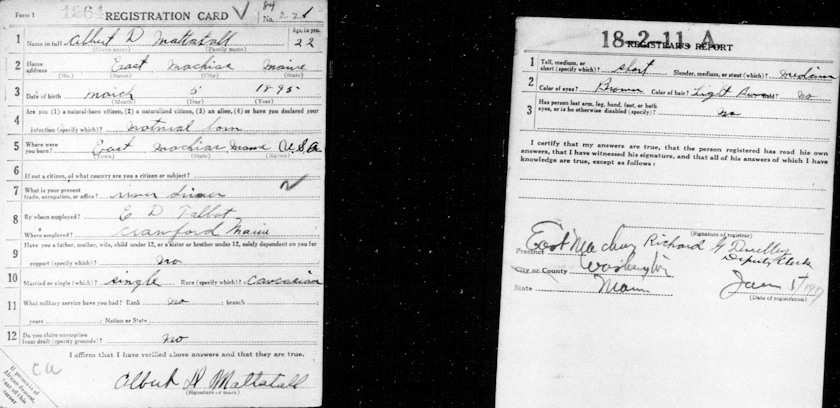 Form 1
1264
REGISTRATION CARD
V
84
No. 221
1 Name in full Albert D Mattatall
(Given name) (Family name)
Age, in yrs. 22
2 Home address East Machias Maine
(No.) (Street) (City) (State)
3 Date of birth March 5 1895
(Month) (Day) (Year)
4 Are you (1) a natural-born citizen, (2) a naturalized citizen, (3) an alien, (4) or have you declared your
intention (specify which)? natural born
5 Where were you born? East Machias, Maine U.S.A
(Town) (State) (Nation)
6 If not a citizen, of what country are you a citizen or subject?
7 What is your present trade, occupation, or office? river driver
8 By whom employed? E D Talbot
Where employed? Crawford Maine
9 Have you a father, mother, wife, child under 12, or a sister or brother under 12, solely dependent on you for
support (specify which)? No
10 Married or single (which)? single Race (specify which)? Caucasian
11 What military service have you had? Rank no ; branch ;
years ; Nation or State
12 Do you claim exemption from draft (specify grounds)? No
I affirm that I have verified above answers and that they are true.
Albert D Mattatall
(Signature or mark)
If person is of African descent, tear off this corner
18-2-11 A
REGISTRAR'S REPORT
1 Tall, medium, or short (specify which)? short Slender, medium, or stout (which)? medium
2 Color of eyes? Brown Color of hair? Light Brown Bald? No
3 Has person lost arm, leg, hand, foot, or both
eyes, or is he otherwise disabled (specify)? No
I certify that my answers are true, that the person registered has read his own
answers, that I have witnessed his signature, and that all of his answers of which I have
knowledge are true, except as follows:
Richard G
(Signature of registrar)
Deputy Clerk
Precinct East Machias
City or County Washington
State Maine
June 5 1917
(Date of registration)